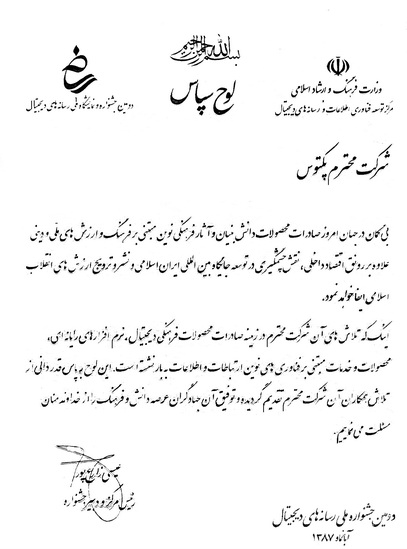 بسم الله الرحمن الرحیم
لوح سپاس
وزارت فرهنگ و ارشاد اسلامی
مرکز توسعه فناوری اطلاعات و رسانه های دیجیتال
دومین جشنواره و نمایشگاه ملی رسانه های دیجیتال
شرکت محترم پکتوس
بی گمان در جهان امروز صادرات محصولات دانش بنیان و آثار فرهنگی نوین مبتنی بر فرهنگ و ارزش های ملی و دینی
علاوه بر رونق اقتصاد داخلی، نقش چشمگیری در توسعه جایگاه بین المللی ایران اسلامی و نشر و ترویج ارزش های انقلاب
اسلامی ایفا خواهد نمود.
اینک که تلاش های آن شرکت محترم در زمینه صادرات محصولات فرهنگی دیجیتال، نرم افزارهای رایانه ای،
محصولات و خدمات مبتنی بر فناوری های نوین ارتباطات و اطلاعات به بار نشسته است. این لوح به پاس قدردانی از
تلاش همکاران آن شرکت محترم تقدیم گردیده و توفیق آن جهادگران عرصه دانش و فرهنگ را از خداوند منان
مسئلت می نماییم.
عیسی زارع پور
رئیس مرکز و دبیر جشنواره
دومین جشنواره ملی رسانه های دیجیتال
آبانماه ۱۳۸۷